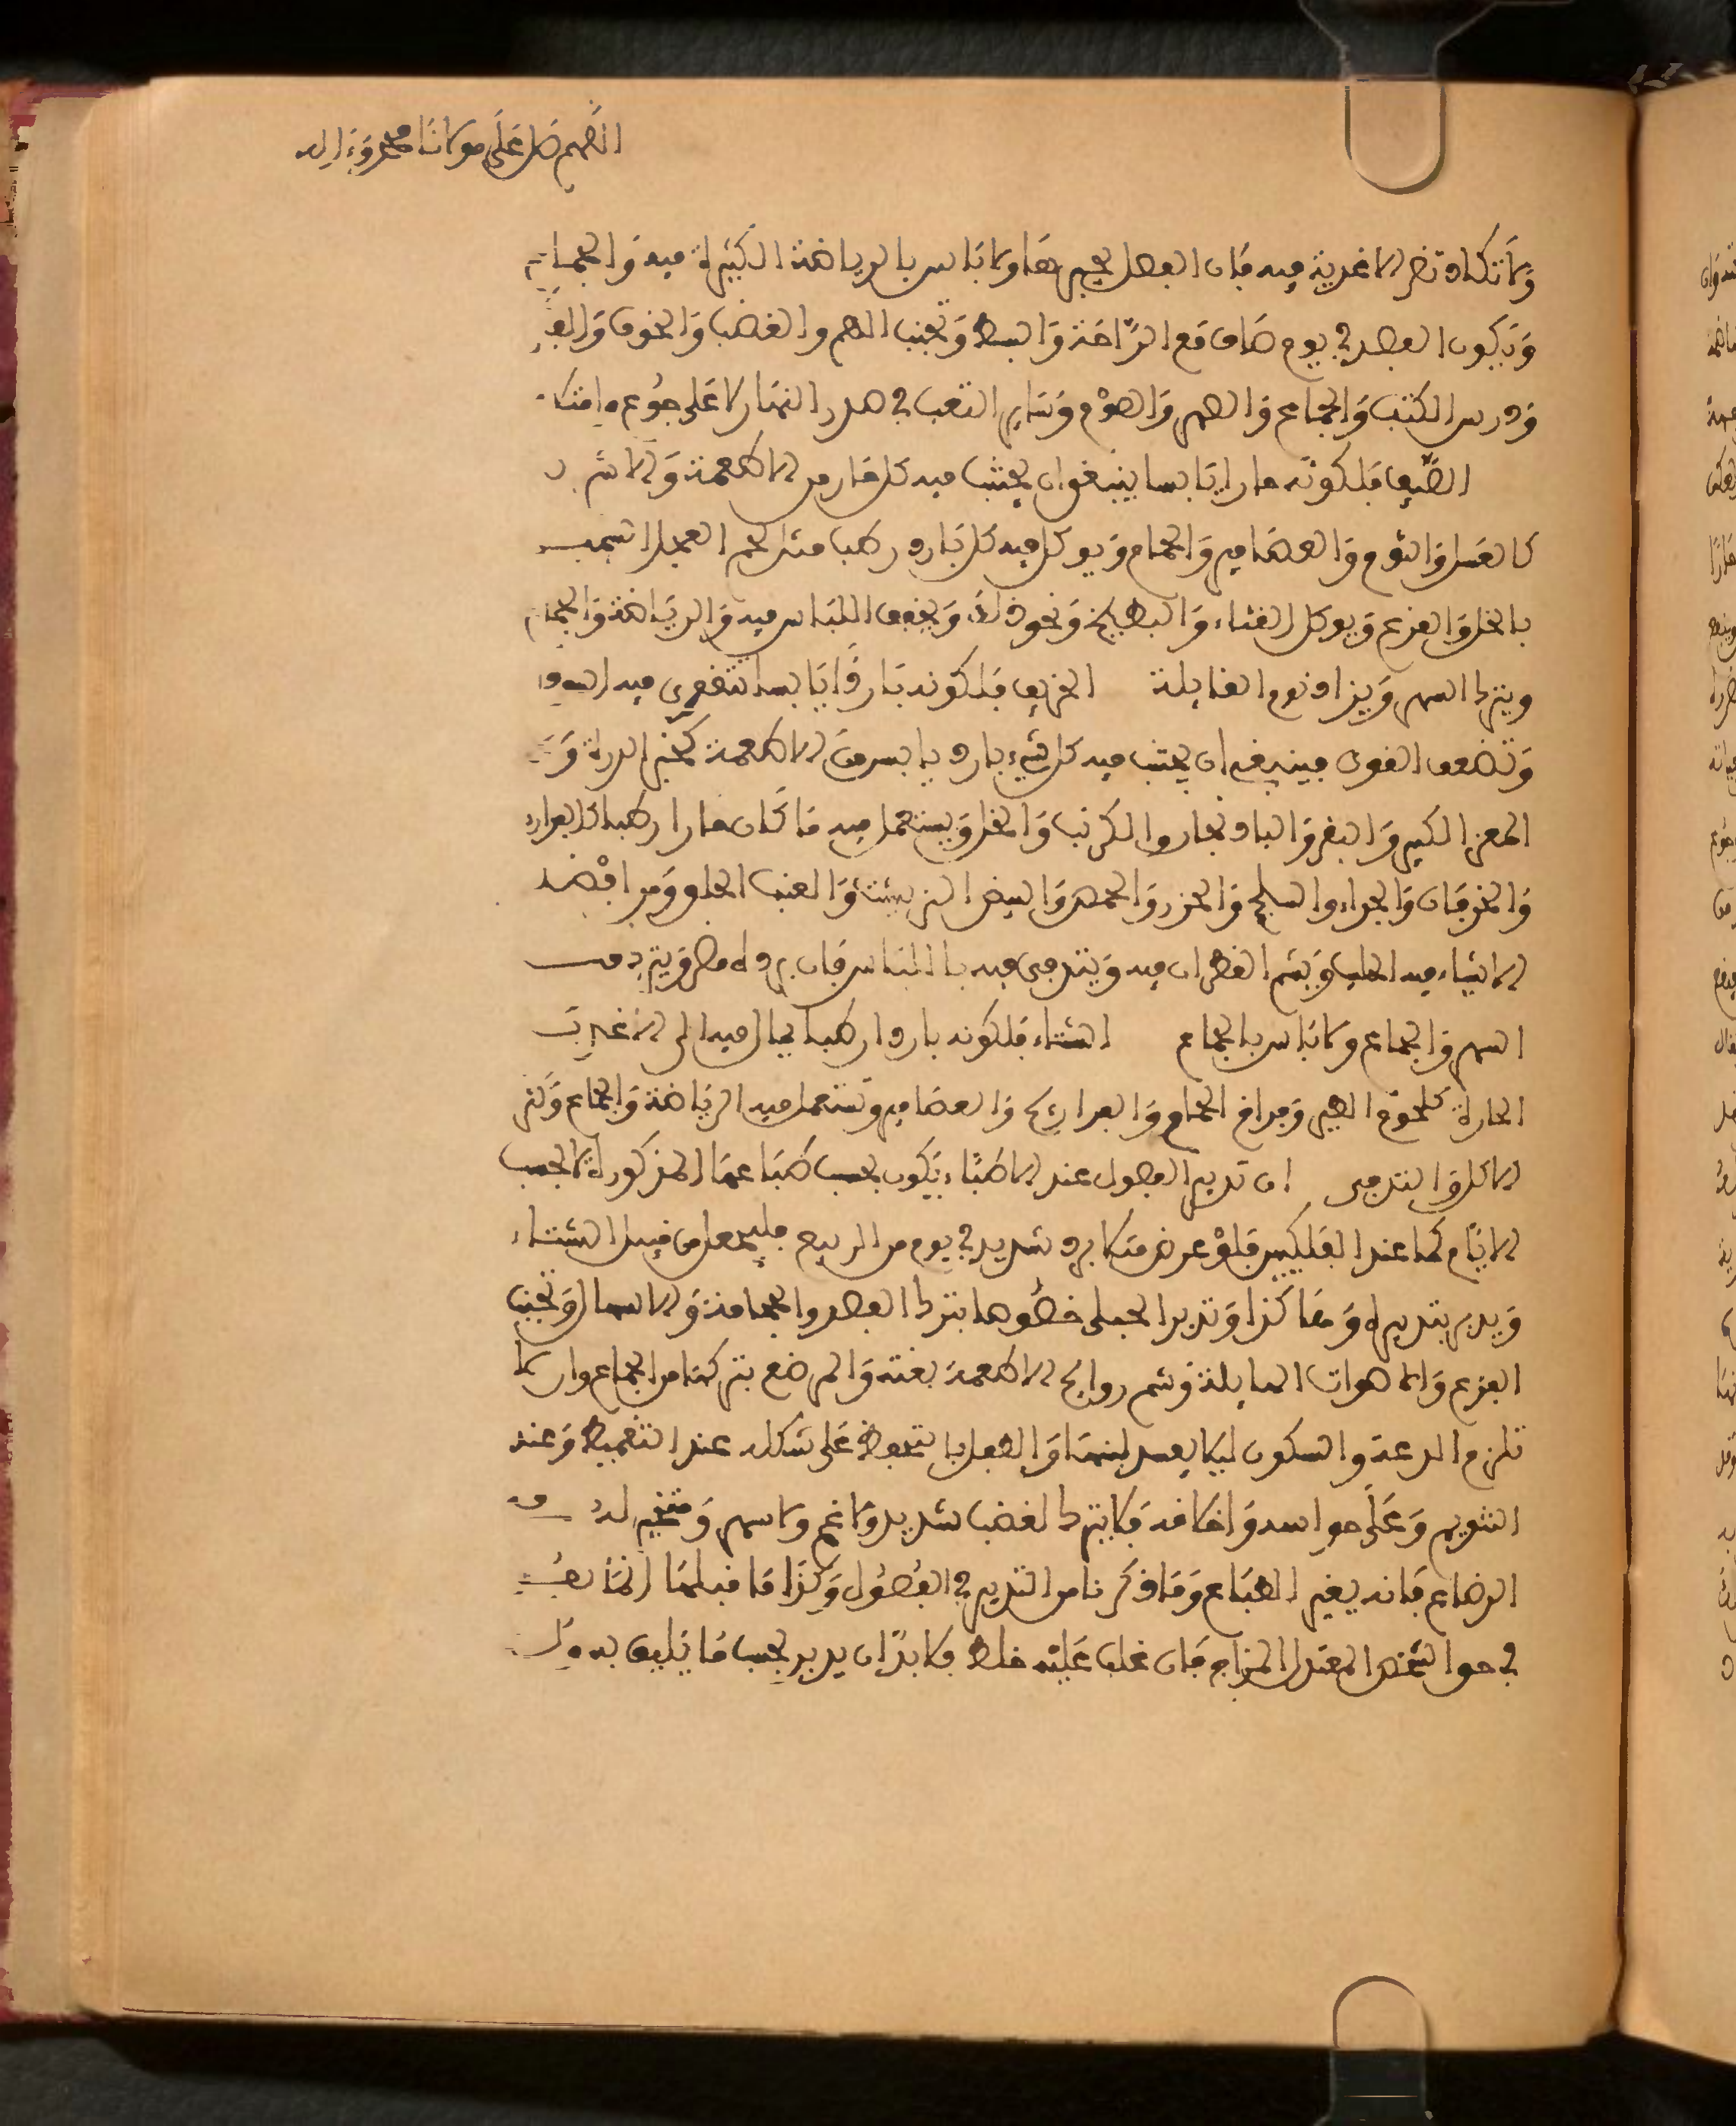 اللهم صل على مولانا محمد وءاله
ولا تكاد تضر الاغذية فيه فان الفصل يجبرها ولا باس بالرياضة الكثيرة فيه والحمام
ويكون الفصد في يوم صاف مع الراحة والبسط وتجنب الهم والغضب والخوف
ودرس الكتب والجماع والسهر والصوم وساير التعب في صدر النهار لا على جوع وامتلا
الصيف فلكونه حارا يابسا ينبغي ان يجتنب فيه كل حار من الاطعمة والاشربة
كالعسل والثوم والعصافير والحمام ويوكل فيه كل بارد رطب مثل لحم العجل
بالخل والقرع ويوكل القثاء والبطيخ ونحو ذلك ويخفف اللباس فيه والرياضة والحمام
ويترك السهر ويزاد نوم القايلة الخريف فلكونه باردا يابسا تتقوى فيه السودا
وتضعف القوى فينبغي ان يجتنب فيه كل شيء بارد يابس من الاطعمة كخبز الدرة
المعز الكبير والبقر والبادنجان والكرنب والخل ويستعمل فيه ما كان حارا رطبا
والخرفان والجراد والسلجم والجزر والحمص والبيض والعنب الحلو ومن افضل
الاشياء فيه الحليب ويشم القطران فيه ويتدفى فيه باللباس فان برده مضر
السهر والجماع ولا باس بالحمام الشتاء فلكونه باردا رطبا يمال فيه الى الاغذية
الحارة كلحوم الطير وفراخ الحمام والفراريج والعصافير وتستعمل فيه الرياضة والحمام وكثرة
الاكل والتدفى ان تدبير الفصول عند الاطباء يكون بحسب طباعها المذكورة لا بحسب
الايام كما عند الفلكيين فلو عرض مثلا برد شديد في يوم من الربيع فليجعل من قبيل الشتاء
ويدبر بتدبيره وهاكذا وتدبير الحبلى خصوصا بترك الفصد والحجامة والاسهال وتجنب
الفزع والاصوات الهايلة وشم روايح الاطعمة بغتة والمرضع بتركها من الجماع وان
تلزم الدعة والسكون ليلا يفسد لبنها والطفل بالتحفظ على شكله عند التقميط وعند
التنويم وعلى حواسه واخلاقه فلا يترك لغضب شديد ولا غم ولا سهر
الرضاع فانه يغير الطباع وما ذكرنا من التدبير في الفصول وكذا ما قبلها انما
في حق الشخص المعتدل المزاج فان غلب عليه خلط فلا بد ان يدبر بحسب ما يليق به